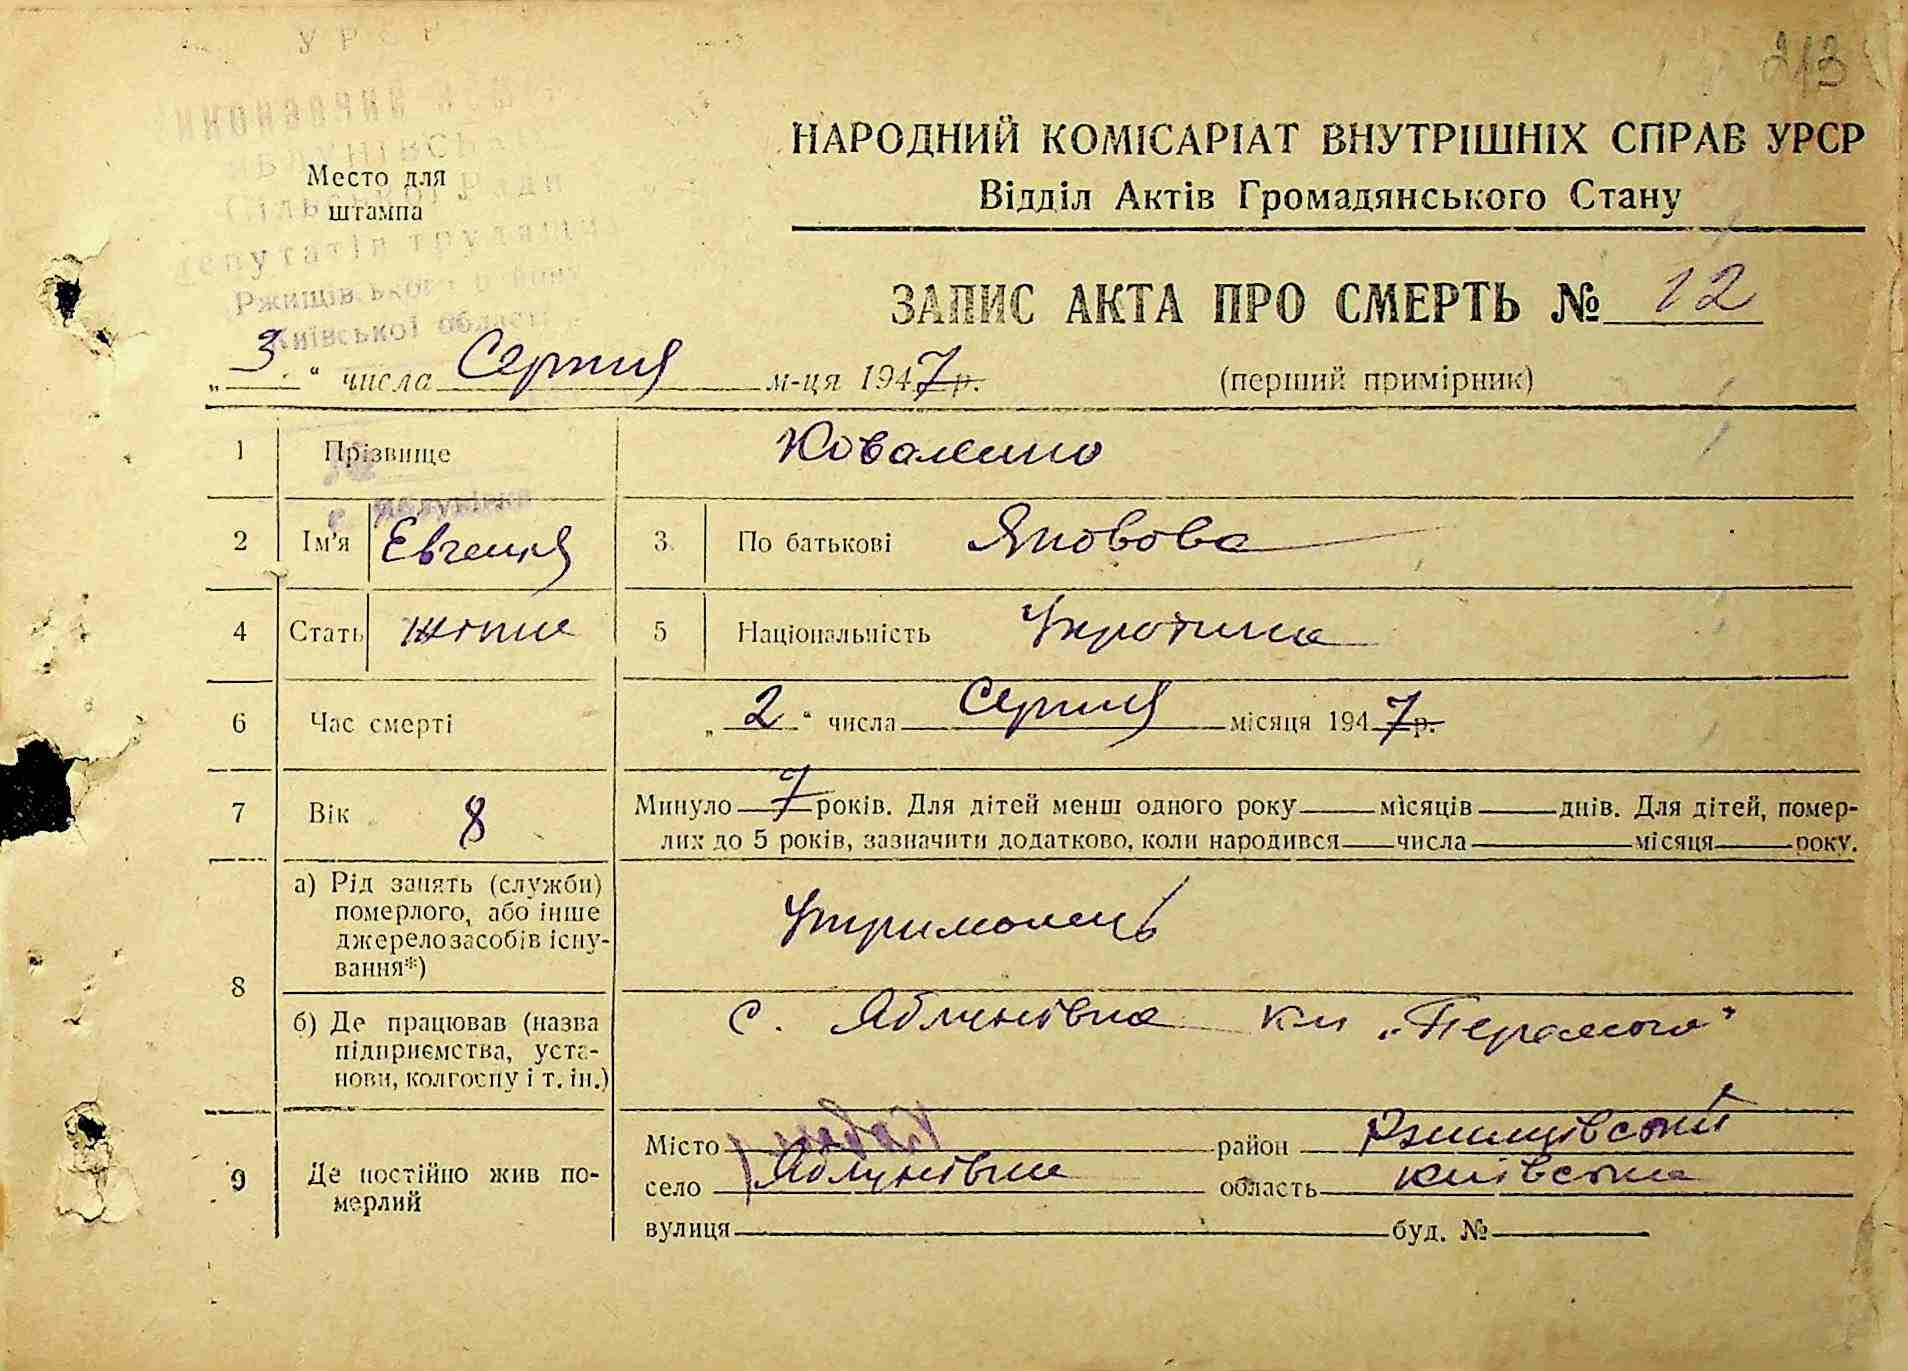 213
УРСР
Яблунівська
Сільської Ради
депутатів трудящих
Ржищівського району
Київської області
Место для
штампа
НАРОДНИЙ КОМІСАРІАТ ВНУТРІШНІХ СПРАВ УРСР
Відділ Актів Громадянського Стану
ЗАПИС АКТА ПРО СМЕРТЬ № 12
„3“ числа Серпня м-ця 1947 р. (перший примірник)
1 Прізвище Коваленко
с. Яблунівка
2 Ім'я Евгения 3 По батькові Яковова
4 Стать жіноча 5 Національність Українка
6 Час смерті „2“ числа Серпня місяця 1947 р.
7 Вік 8 Минуло 7 років. Для дітей менш одного року місяців днів. Для дітей, помер-
лих до 5 років, зазначити додатково, коли народився числа місяця року.
8 а) Рід занять (служби)
померлого, або інше
джерело засобів існу-
вання*)
Утриманець
б) Де працював (назва
підприємства, уста-
нови, колгоспу і т. ін.)
с. Яблунівка к-п „Перемога“
9 Де постійно жив по-
мерлий
Місто район Ржищівський
село Яблунівка область Київська
вулиця буд. №